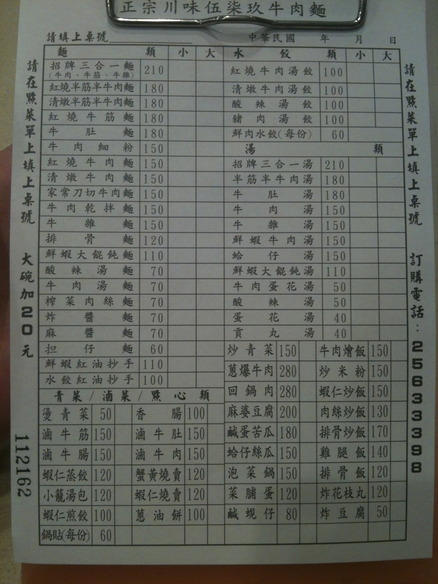 正宗川味伍柒玖牛肉麵
請填上桌號
中華民國 年 月 日
麵 類 小 大
招牌三合一麵 210
(牛肉、牛筋、牛雜)
紅燒半筋半牛肉麵 180
清燉半筋半牛肉麵 180
紅燒牛筋麵 180
牛肚麵 180
牛肉細粉 150
紅燒牛肉麵 150
清燉牛肉麵 150
家常刀切牛肉麵 150
牛肉乾拌麵 150
牛雜麵 150
排骨麵 120
鮮蝦大餛飩麵 110
酸辣湯麵 70
牛肉湯麵 70
榨菜肉絲麵 70
炸醬麵 70
麻醬麵 70
担仔麵 60
鮮蝦紅油抄手 110
水餃紅油抄手 100
青菜/滷菜/點心類
燙青菜 50 香腸 100
滷牛筋 150 滷牛肚 150
滷牛腸 150 滷牛肉 150
蝦仁蒸餃 120 蟹黃燒賣 120
小籠湯包 120 蝦仁燒賣 120
蝦仁煎餃 120 蔥油餅 100
鍋貼(每份) 60
水餃 類 小 大
紅燒牛肉湯餃 100
清燉牛肉湯餃 100
酸辣湯餃 100
豬肉湯餃 100
鮮肉水餃(每份) 60
湯 類
招牌三合一湯 210
半筋半牛肉湯 180
牛肚湯 180
牛肉湯 150
牛雜湯 150
鮮蝦牛肉湯 150
蛤仔湯 150
鮮蝦大餛飩湯 110
牛肉蛋花湯 50
酸辣湯 50
蛋花湯 40
貢丸湯 40
炒青菜 150 牛肉燴飯 150
蔥爆牛肉 280 炒米粉 150
回鍋肉 280 蝦仁炒飯 150
麻婆豆腐 200 肉絲炒飯 130
鹹蛋苦瓜 180 排骨炒飯 170
蛤仔絲瓜 150 雞腿飯 140
泡菜鍋 150 排骨飯 120
菜脯蛋 120 炸花枝丸 120
鹹蜆仔 80 炸豆腐 50
請在點菜單上填上桌號
大碗加20元
112162
請在點菜單上填上桌號
訂購電話:25633398